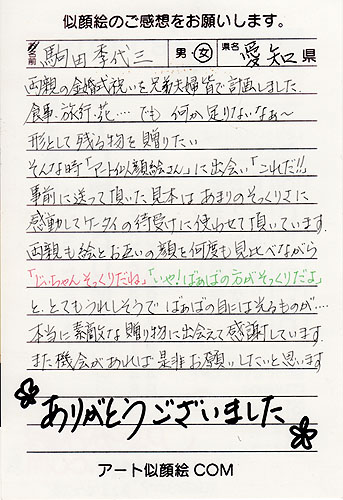 似顔絵のご感想をお願いします。
お名前 駒田季代三 男・女 県名 愛知県
両親の金婚式祝いを兄弟夫婦皆で計画しました
食事、旅行、花…でも何か足りないなぁ〜
形として残る物を贈りたい
そんな時「アート似顔絵さん」に出会い「これだ!!」
事前に送って頂いた見本はあまりのそっくりさに
感動してケータイの待受けに使わせて頂いています。
両親も絵とお互いの顔を何度も見比べながら
「じいちゃんそっくりだね」「いや!ばぁばの方がそっくりだよ」
と、とてもうれしそうでばぁばの目には光るものが…。
本当に素敵な贈り物に出会えて感謝しています。
また機会があれば是非お願いしたいと思います
ありがとうございました
アート似顔絵COM